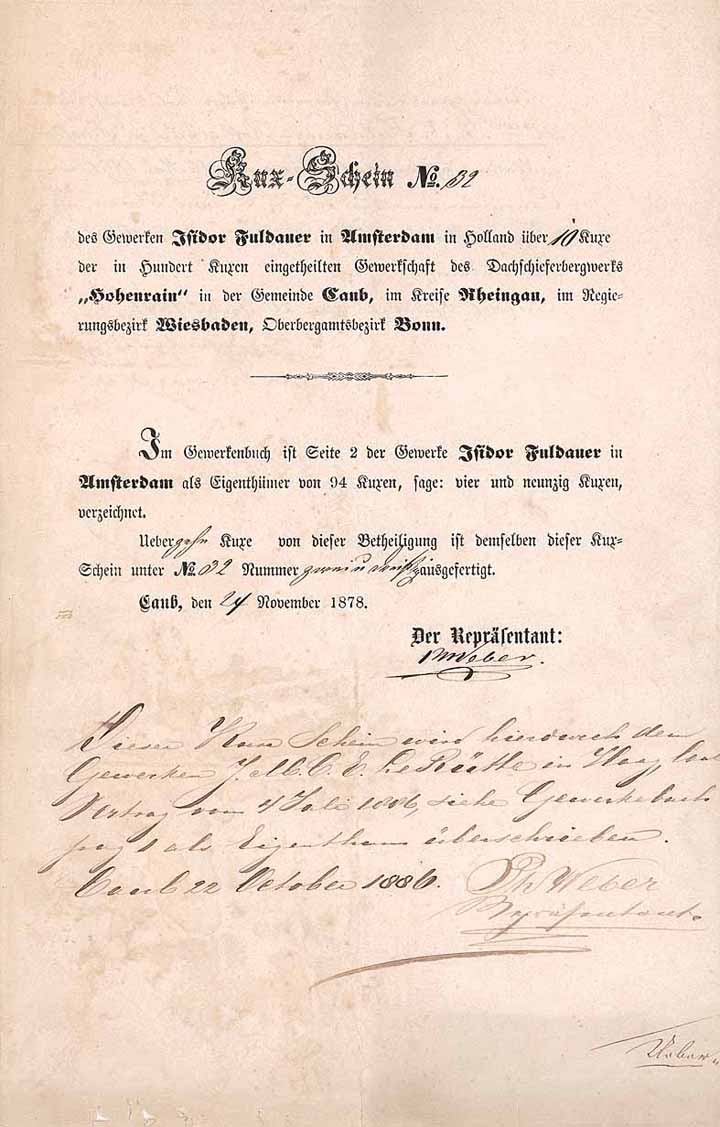 Kux-Schein No. 32
des Gewerken Isidor Fuldauer in Amsterdam in Holland über 10 Kuxe
der in Hundert Kuxen eingetheilten Gewerkschaft des Dachschieferbergwerks
„Hohenrain“ in der Gemeinde Caub, im Kreise Rheingau, im Regie-
rungsbezirk Wiesbaden, Oberbergamtsbezirk Bonn.
Im Gewerkenbuch ist Seite 2 der Gewerke Isidor Fuldauer in
Amsterdam als Eigenthümer von 94 Kuxen, sage: vier und neunzig Kuxen,
verzeichnet.
Ueber zehn Kuxe von dieser Betheiligung ist demselben dieser Kux-
Schein unter No. 32 Nummer zwei u dreißig ausgefertigt.
Caub, den 24 November 1878.
Der Repräsentant:
Weber.
Dieser Kux Schein wird hierdurch dem
Gewerken J. M. C. E. Le Rütte in Haag, laut
Vertrag vom 4 Juli 1886, siehe Gewerkebuch
pag 1 als Eigenthum überschrieben.
Caub 22 October 1886. Ph Weber
Repräsentant.